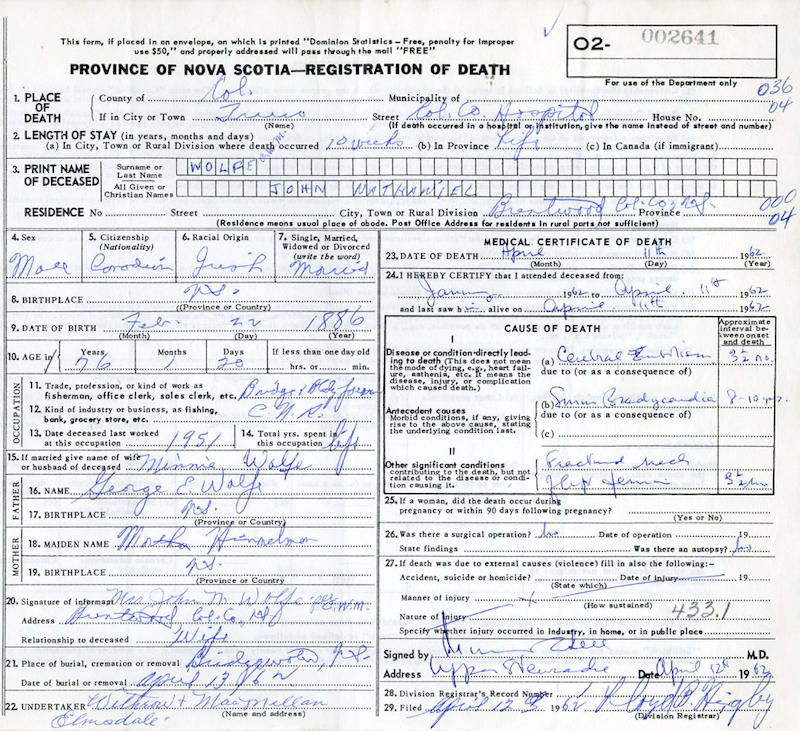 This form, if placed in an envelope, on which is printed "Dominion Statistics - Free, penalty for improper
use $50," and properly addressed will pass through the mail "FREE"
O2- 002641
PROVINCE OF NOVA SCOTIA—REGISTRATION OF DEATH
For use of the Department only
036
04
1. PLACE OF DEATH { County of Col. Municipality of
If in City or Town Truro Street Col. Co. Hospital House No.
(Name) (If death occurred in a hospital or institution, give the name instead of street and number)
2. LENGTH OF STAY (in years, months and days)
(a) In City, Town or Rural Division where death occurred 10 weeks (b) In Province Life (c) In Canada (if immigrant)
3. PRINT NAME OF DECEASED { Surname or Last Name WOLFE
All Given or Christian Names JOHN NATHANIEL
RESIDENCE No Street City, Town or Rural Division Brentwood Col. Co. N.S. Province
000
04
(Residence means usual place of abode. Post Office Address for residents in rural parts not sufficient)
4. Sex 5. Citizenship (Nationality) 6. Racial Origin 7. Single, Married, Widowed or Divorced (write the word)
Male Canadian Married
8. BIRTHPLACE N.S.
(Province or Country)
9. DATE OF BIRTH Feb. 22 1886
(Month) (Day) (Year)
10. AGE in { Years Months Days If less than one day old
76 1 20 hrs. or min.
OCCUPATION
11. Trade, profession, or kind of work as
fisherman, office clerk, sales clerk, etc. Bridge & Bldg foreman
12. Kind of industry or business, as fishing,
bank, grocery store, etc. C.N.R.
13. Date deceased last worked
at this occupation 1951
14. Total yrs. spent in
this occupation life
15. If married give name of wife
or husband of deceased Minnie Wolfe
FATHER
16. NAME George E Wolfe
17. BIRTHPLACE N.S.
(Province or Country)
MOTHER
18. MAIDEN NAME Martha Himmelman
19. BIRTHPLACE N.S.
(Province or Country)
20. Signature of informant Mrs. John N. Wolfe per C.W.M.
Address Brentwood Col. Co., N.S.
Relationship to deceased Wife
21. Place of burial, cremation or removal Bridgewater, N.S.
Date of burial or removal April 13 1962
22. UNDERTAKER Withrow & MacMillan
Elmsdale (Name and address)
MEDICAL CERTIFICATE OF DEATH
23. DATE OF DEATH April 11th 1962
(Month) (Day) (Year)
24. I HEREBY CERTIFY that I attended deceased from:
1962 to April 11th 1962
and last saw h alive on April 11th 1962
CAUSE OF DEATH
Approximate interval between onset and death
I
Disease or condition directly leading
to death (This does not mean
the mode of dying, e.g., heart failure,
asthenia, etc. It means the
disease, injury, or complication
which caused death.)
(a) Cerebral Embolism 3½
due to (or as a consequence of)
Antecedent causes
Morbid conditions, if any, giving
rise to the above cause, stating
the underlying condition last.
(b) Sinus Bradycardia 8-10 yrs.
due to (or as a consequence of)
(c)
II
Other significant conditions
contributing to the death, but not
related to the disease or condition
causing it.
Fractured Neck
3½
25. If a woman, did the death occur during
pregnancy or within 90 days following pregnancy?
(Yes or No)
26. Was there a surgical operation? No Date of operation 19
State findings Was there an autopsy? No
27. If death was due to external causes (violence) fill in also the following:-
Accident, suicide or homicide? Date of injury 19
(State which)
Manner of injury
(How sustained)
Nature of injury 433.1
Specify whether injury occurred in industry, in home, or in public place
Signed by M.D.
Address Upper Stewiacke Date April 12th 1962
28. Division Registrar's Record Number
29. Filed April 12 1962 Lloyd B. Higby
(Division Registrar)